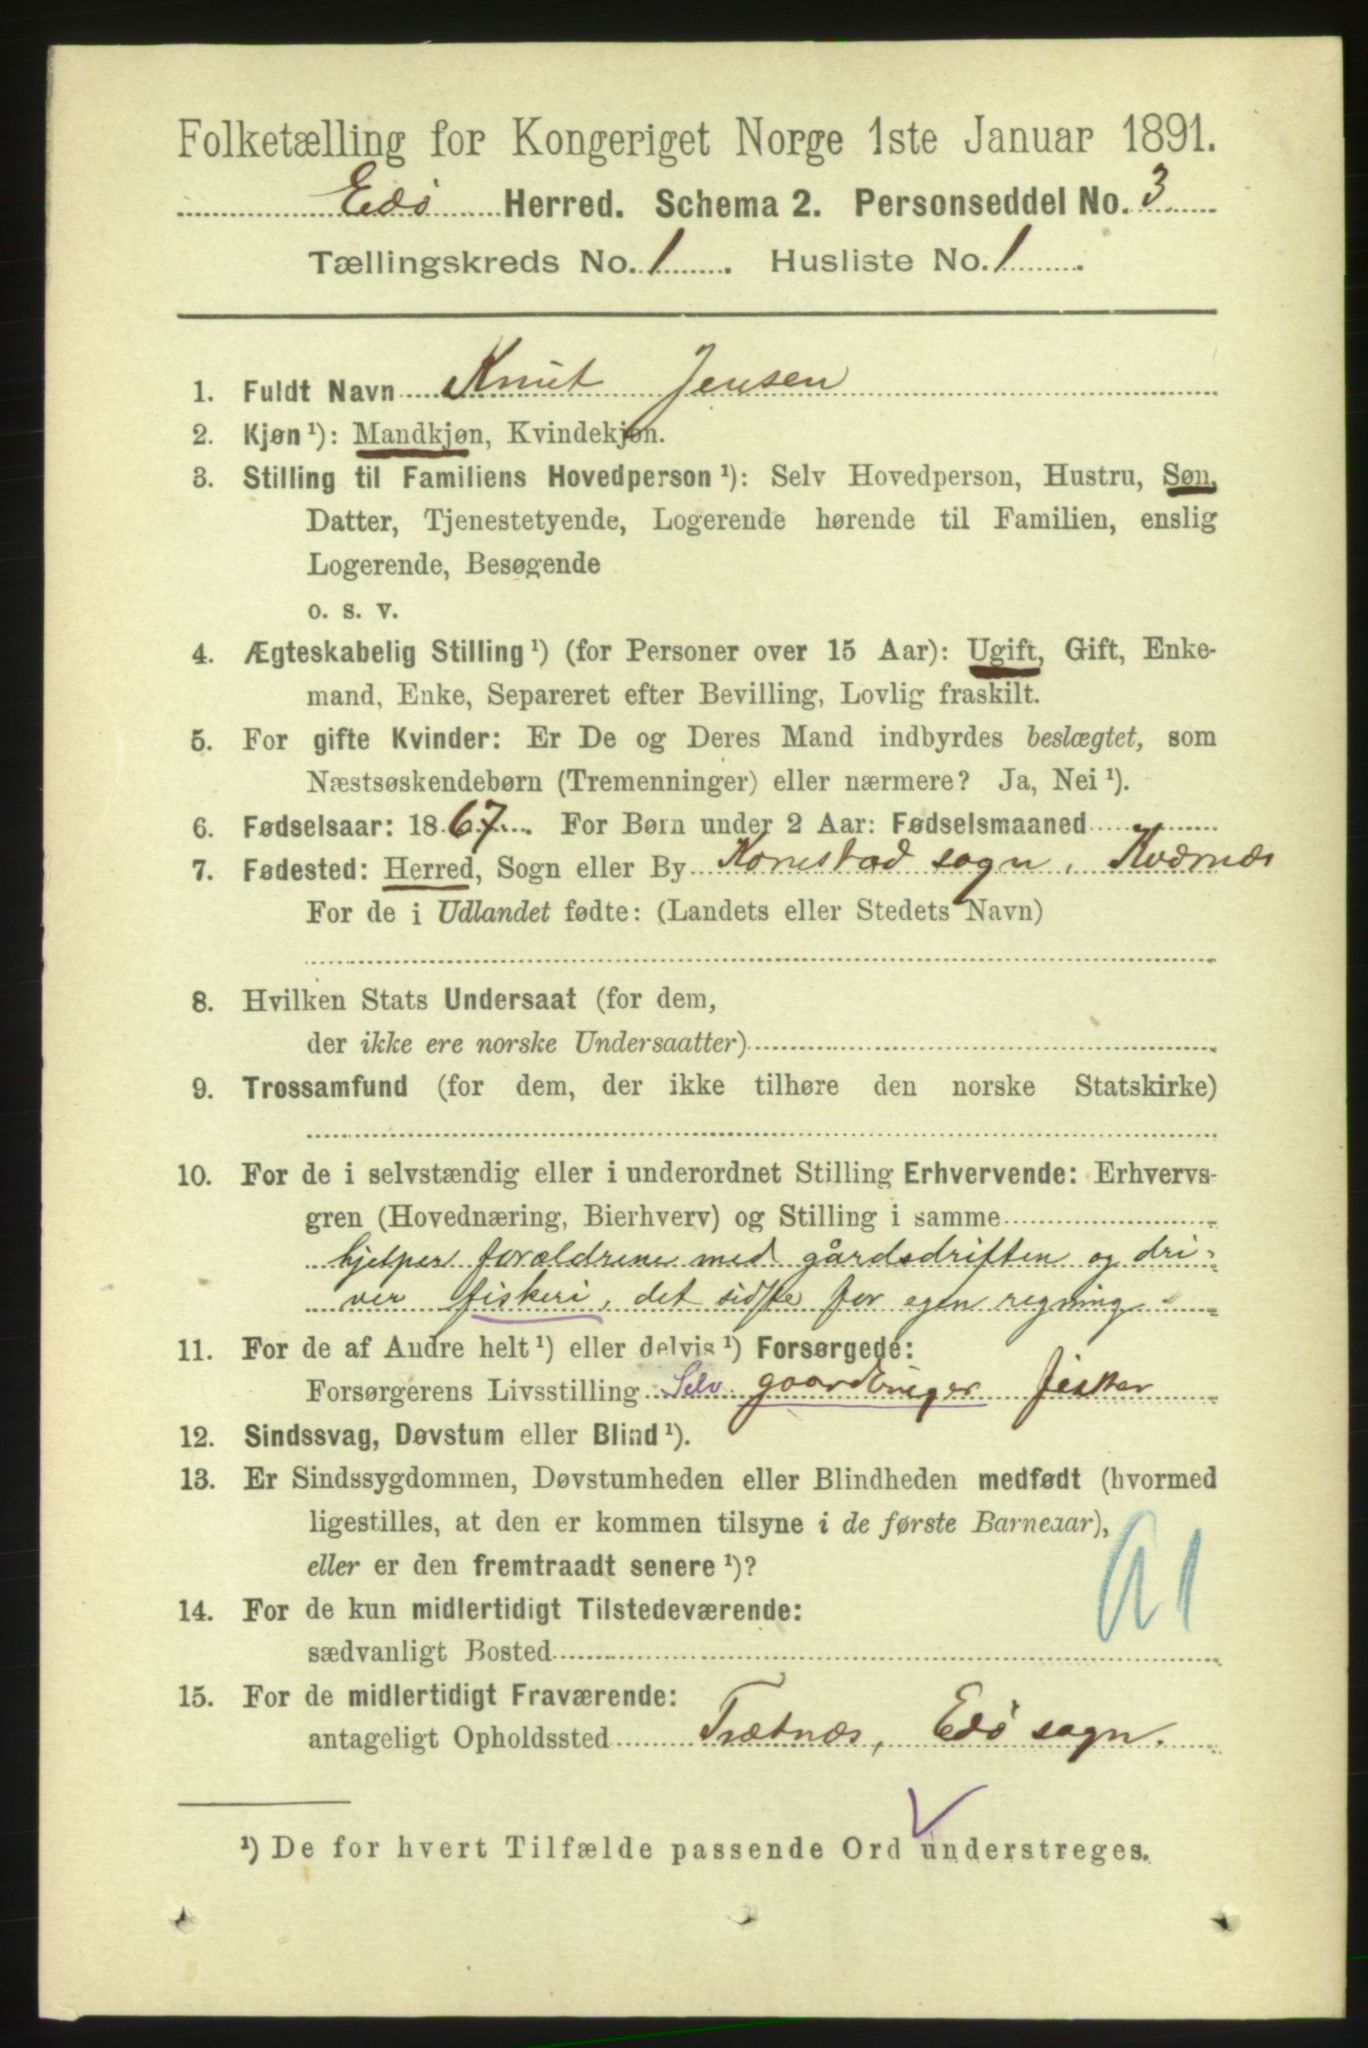 Folketælling for Kongeriget Norge 1ste Januar 1891.
Edø Herred. Schema 2. Personseddel No. 3
Tællingskreds No. 1. Husliste No. 1.
1. Fuldt Navn Knut Jensen
2. Kjøn ¹): Mandkjøn, Kvindekjøn.
3. Stilling til Familiens Hovedperson ¹): Selv Hovedperson, Hustru, Søn,
Datter, Tjenestetyende, Logerende hørende til Familien, enslig
Logerende, Besøgende
o. s. v.
4. Ægteskabelig Stilling ¹) (for Personer over 15 Aar): Ugift, Gift, Enke-
mand, Enke, Separeret efter Bevilling, Lovlig fraskilt.
5. For gifte Kvinder: Er De og Deres Mand indbyrdes beslægtet, som
Næstsøskendebørn (Tremenninger) eller nærmere? Ja, Nei ¹).
6. Fødselsaar: 1867. For Børn under 2 Aar: Fødselsmaaned
7. Fødested: Herred, Sogn eller By Kornstad sogn, Kværnæs
For de i Udlandet fødte: (Landets eller Stedets Navn)
8. Hvilken Stats Undersaat (for dem,
der ikke ere norske Undersaatter)
9. Trossamfund (for dem, der ikke tilhøre den norske Statskirke)
10. For de i selvstændig eller i underordnet Stilling Erhvervende: Erhvervs-
gren (Hovednæring, Bierhverv) og Stilling i samme
hjelper forældrene med gårdsdriften og dri-
ver fiskeri, det sidste for egen regning.
11. For de af Andre helt ¹) eller delvis ¹) Forsørgede:
Forsørgerens Livsstilling Selv gaardbruger fisker
12. Sindssvag, Døvstum eller Blind ¹).
13. Er Sindssygdommen, Døvstumheden eller Blindheden medfødt (hvormed
ligestilles, at den er kommen tilsyne i de første Barneaar),
eller er den fremtraadt senere ¹)?
14. For de kun midlertidigt Tilstedeværende:
sædvanligt Bosted
15. For de midlertidigt Fraværende:
antageligt Opholdssted Trætnæs, Edø sogn.
¹) De for hvert Tilfælde passende Ord understreges.